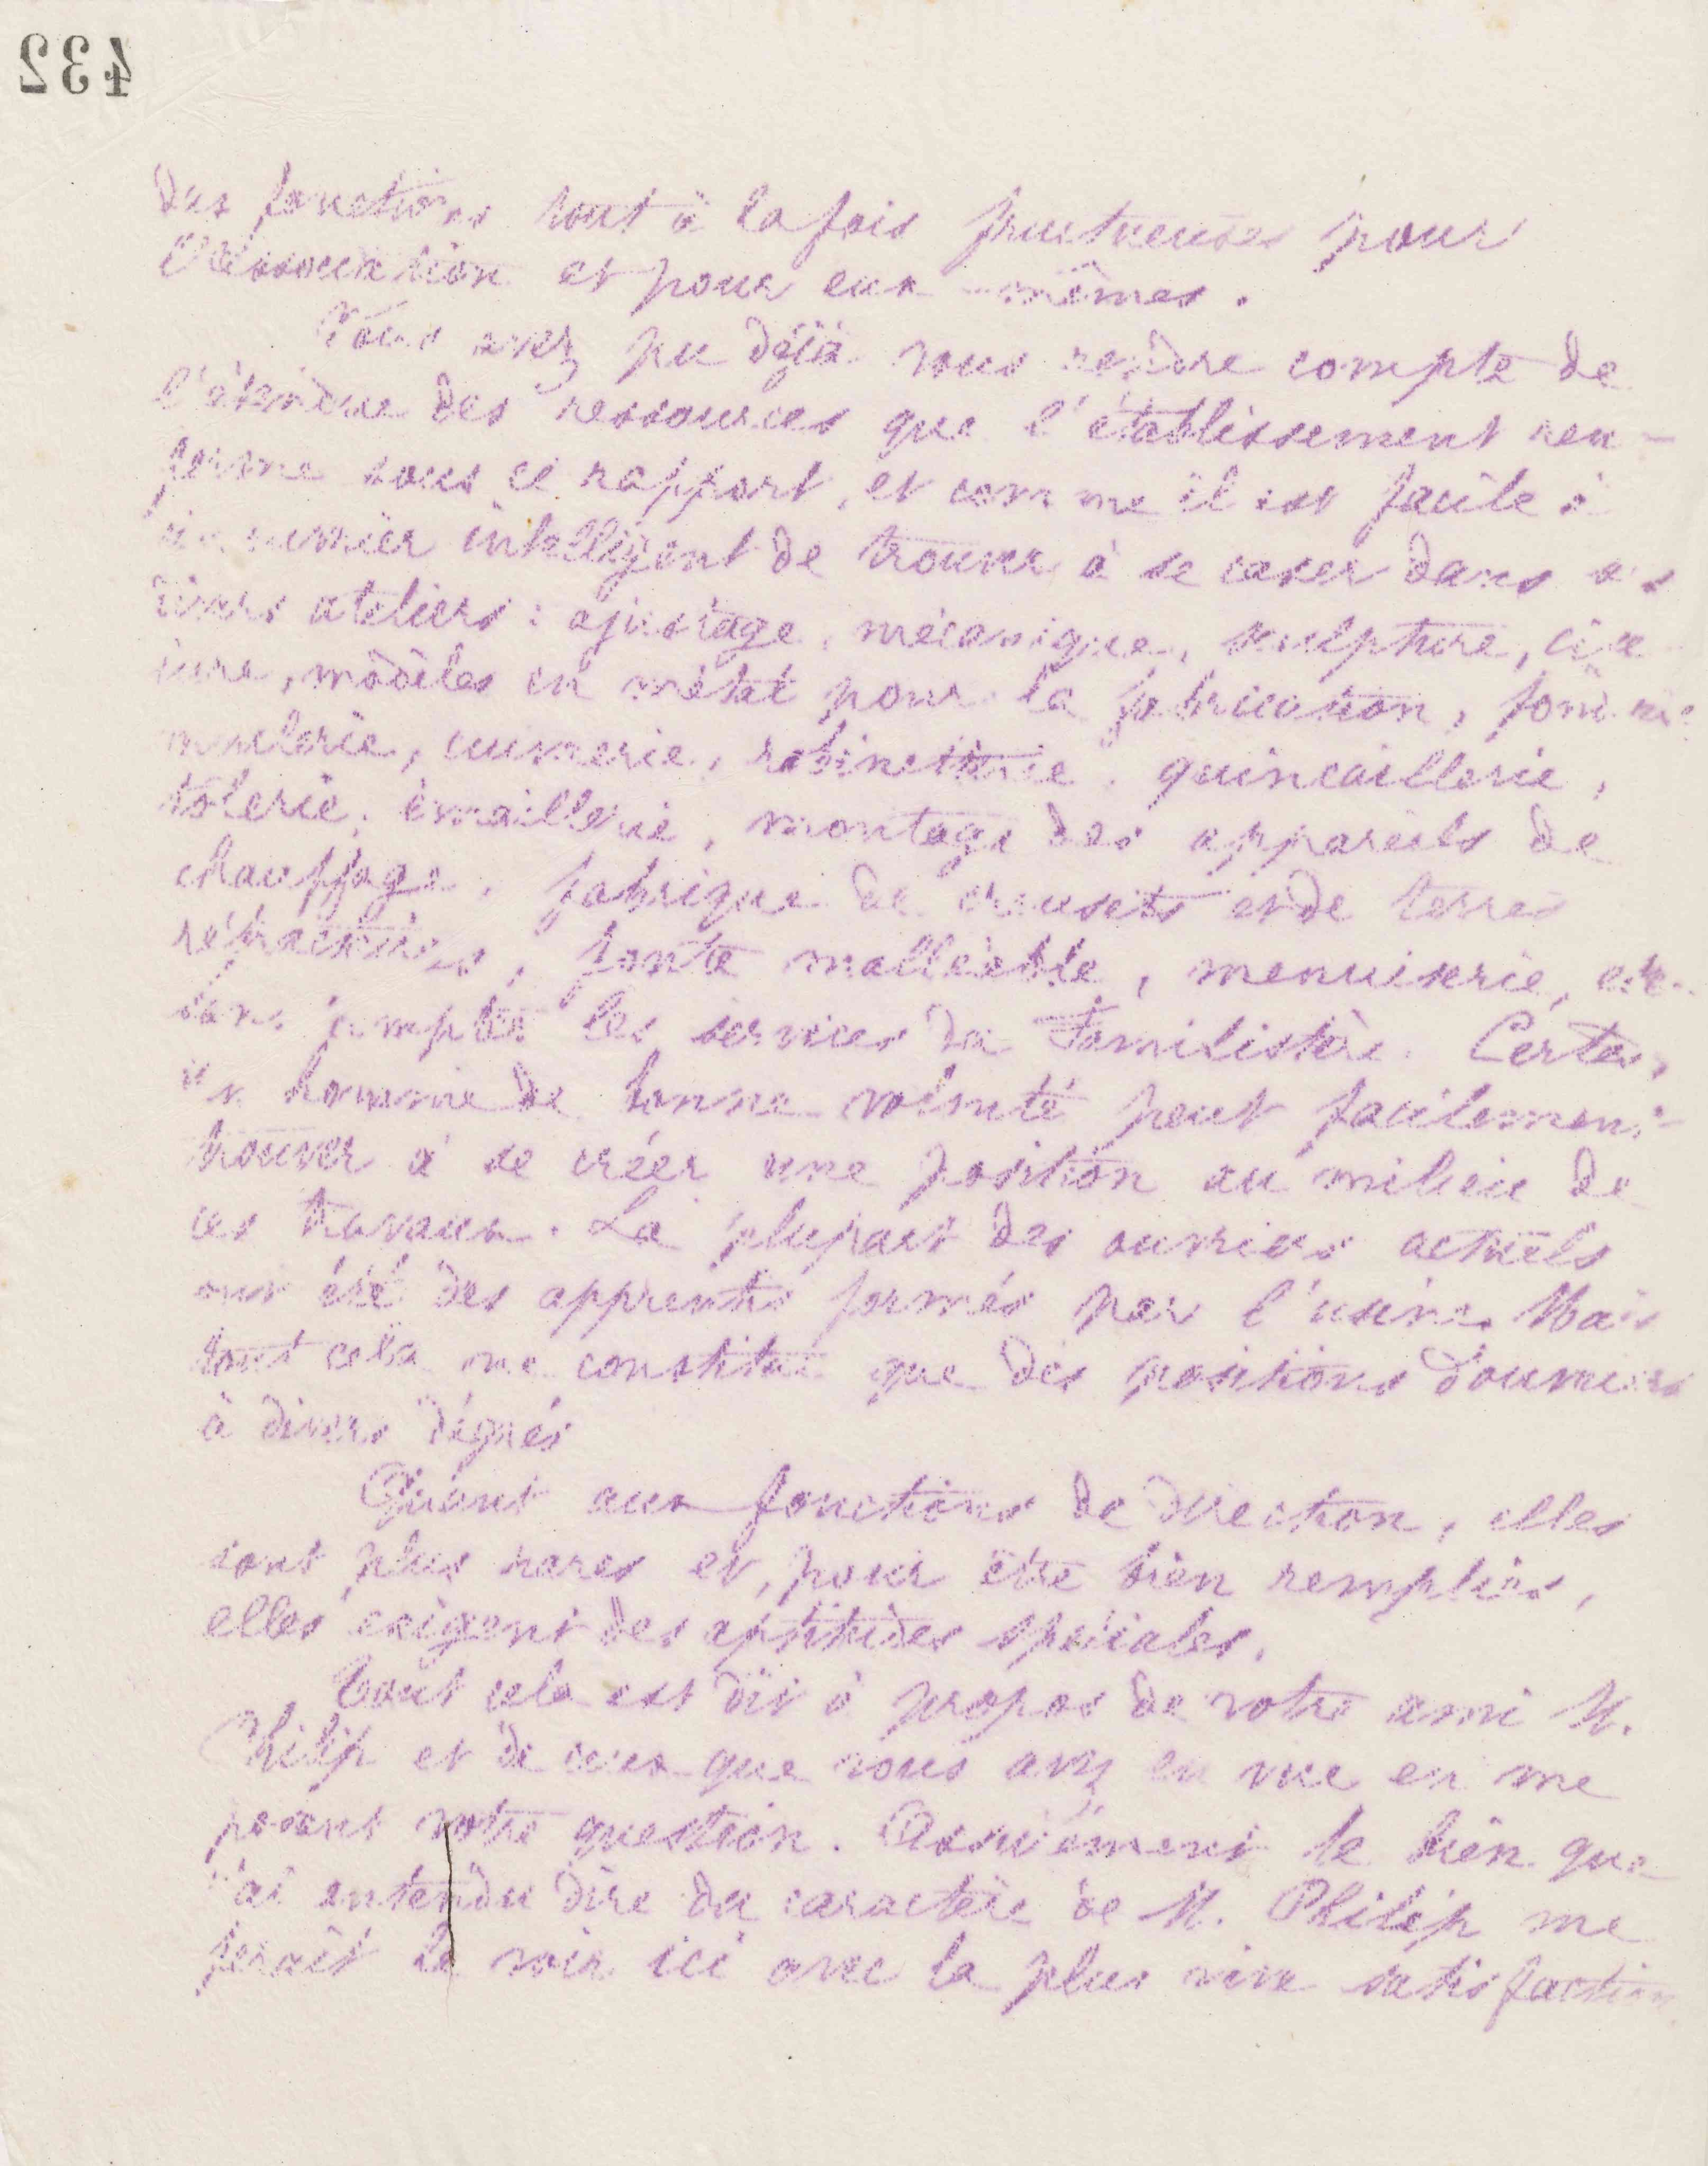 432
des fonctions tout à la fois fructueuses pour
l'Association et pour eux-mêmes.
Vous avez pu déjà vous rendre compte de
l'étendue des ressources que l'établissement ren-
ferme sous ce rapport, et comme il est facile à
un ouvrier intelligent de trouver à se caser dans
divers ateliers : ajustage, mécanique, sculpture, cise
lure, modèles en métal pour la fabrication, fonderie
moulerie, cuivrerie, robinetterie, quincaillerie,
tôlerie, émaillerie, montage des appareils de
chauffage, fabrique de creusets et de terres
réfractaires, fonte malléable, menuiserie, etc.
sans compter les services du Familistère. Certes,
un homme de bonne volonté peut facilement
trouver à se créer une position au milieu de
ces travaux. La plupart des ouvriers actuels
ont été des apprentis formés par l'usine. Mais
tout cela ne constitue que des positions d'ouvriers
à divers dégrés
Quant aux fonctions de direction, elles
sont plus rares et, pour être bien remplies,
elles exigent des aptitudes spéciales.
Tout cela est dit à propos de votre ami M.
Philip et de ceux que vous avez en vue en me
posant votre question. Assurément le bien que
j'ai entendu dire du caractère de M. Philip me
ferait le voir ici avec la plus vive satisfaction